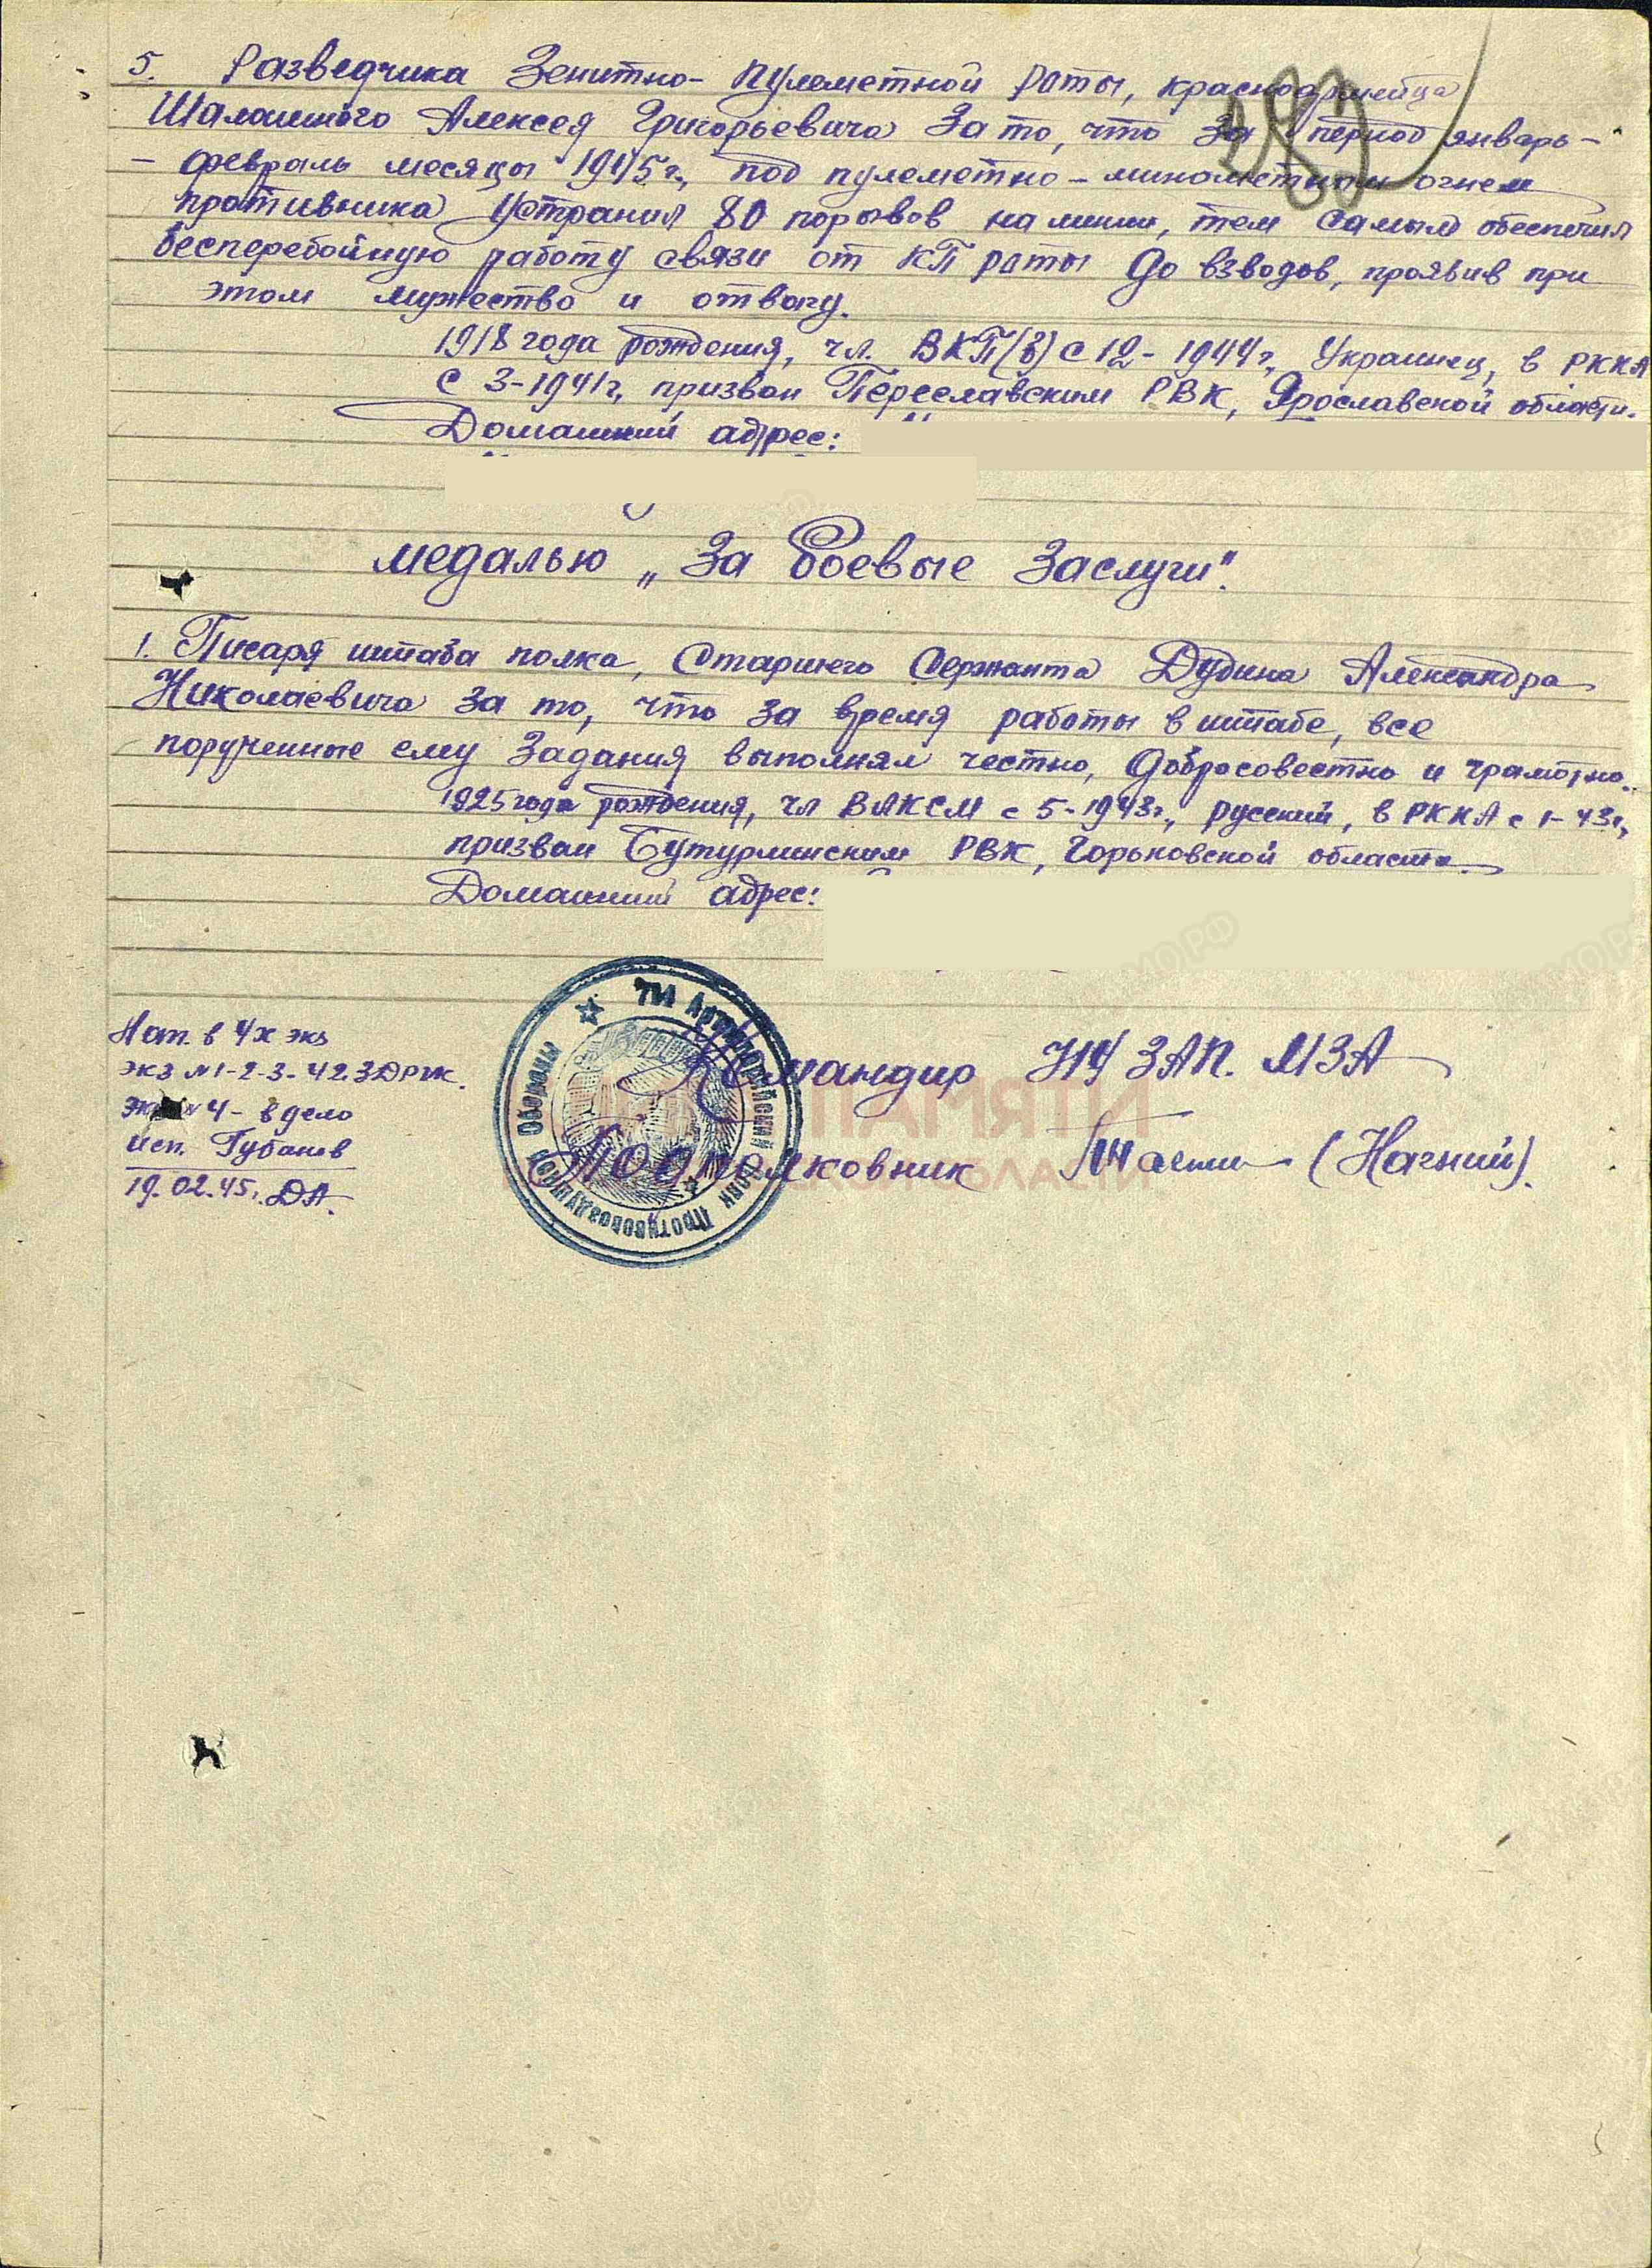 5. Разведчика Зенитно-пулеметной роты, красноармейца
Алексея Григорьевича За то, что за период январь-
- февраль месяцы 1945 г., под пулеметно-минометным огнем
противника устранил 80 порывов на линии, тем самым обеспечил
бесперебойную работу связи от КП роты до взводов, проявив при
этом мужество и отвагу.
1918 года рождения, чл. ВКП(б) с 12-1944 г., Украинец, в РККА
с 3-1941 г., призван Переславским РВК, Ярославской области.
Домашний адрес:
медалью „За боевые Заслуги".
1. Писаря штаба полка, Старшего Сержанта Дудина Александра
Николаевича за то, что за время работы в штабе, все
порученные ему Задания выполнял честно, добросовестно и грамотно.
1925 года рождения, чл ВЛКСМ с 5-1943 г., русский, в РККА с 1-43 г.,
призван Бутурлинским РВК, Горьковской области.
Домашний адрес:
Командир 714 ЗАП. МЗА
Подполковник (Нагний).
714 Артиллерийский Полк Противовоздушной Обороны
ПАМЯТИ
ОБЛАСТИ
Нап. в 4х экз
экз №1-2-3-
экз №4- в дело
исп. Губанов
19.02.45г.